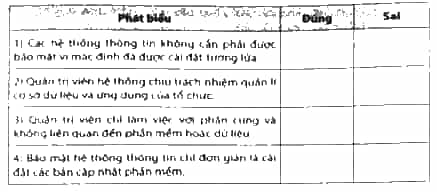 Phát biểu Đúng Sai
1) Các hệ thống thông tin không cần phải được
bảo mật vì mặc định đã được cài đặt tường lửa.
2) Quản trị viên hệ thống chịu trách nhiệm quản lí
cơ sở dữ liệu và ứng dụng của tổ chức.
3) Quản trị viên chỉ làm việc với phần cứng và
không liên quan đến phần mềm hoặc dữ liệu.
4) Bảo mật hệ thống thông tin chỉ đơn giản là cài
đặt các bản cập nhật phần mềm.